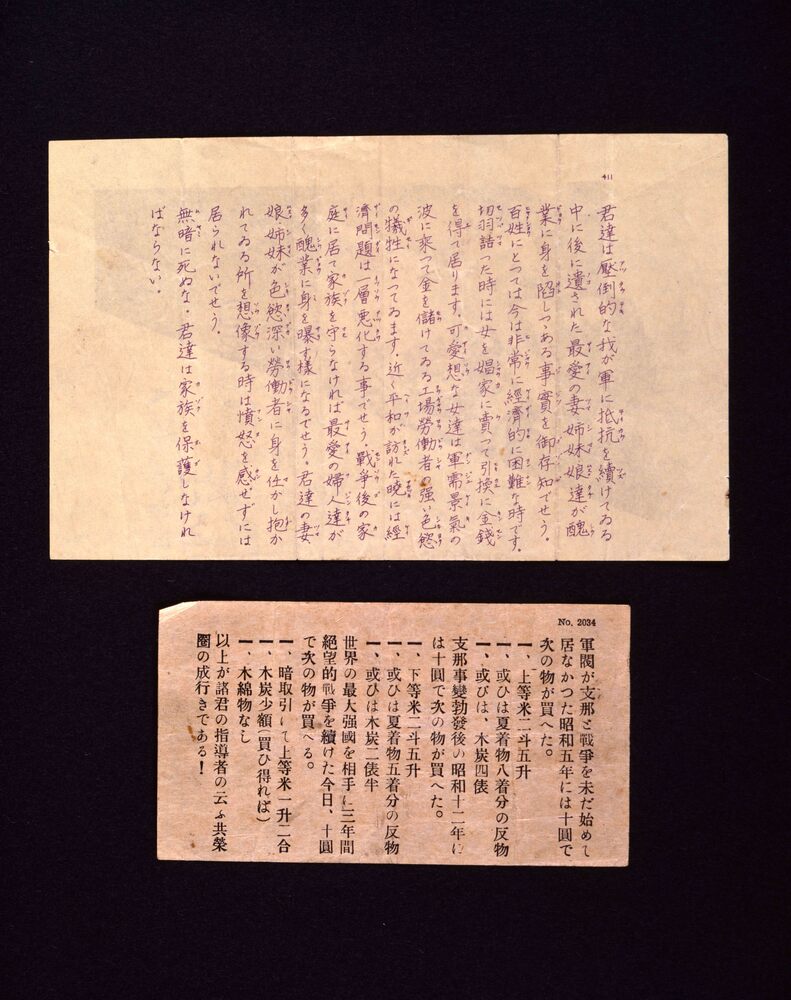 411
君達は壓倒的な我が軍に抵抗を續けてゐる
中に後に遺された最愛の妻姉妹娘達が醜
業に身を陷しつゝある事實を御存知でせう。
百姓にとつては今は非常に經濟的に困難な時です。
切羽詰つた時には女を娼家に賣つて引換に金錢
を得て居ります。可愛想な女達は軍需景氣の
波に乘つて金を儲けてゐる工場勞働者の強い色慾
の犠牲になつてゐます。近く平和が訪れた曉には經
濟問題は一層悪化する事でせう。戰爭後の家
庭に居て家族を守らなければ最愛の婦人達が
多く醜業に身を曝す様になるでせう。君達の妻
娘姉妹が色慾深い勞働者に身を任かし抱か
れてゐる所を想像する時は憤怒を感ぜずには
居られないでせう。
無暗に死ぬな。君達は家族を保護しなけれ
ばならない。
No. 2034
軍閥が支那と戰爭を未だ始めて
居なかつた昭和五年には十圓で
次の物が買へた。
一、上等米二斗五升
一、或ひは夏着物八着分の反物
一、或びは、木炭四俵
支那事變勃發後の昭和十二年に
は十圓で次の物が買へた。
一、下等米二斗五升
一、或ひは夏着物五着分の反物
一、或ひは木炭二俵半
世界の最大强國を相手に三年間
絕望的戰爭を續けた今日、十圓
で次の物が買へる。
一、暗取引にて上等米一升二合
一、木炭少額(買ひ得れば)
一、木綿物なし
以上が諸君の指導者の云ふ共榮
圈の成行きである！